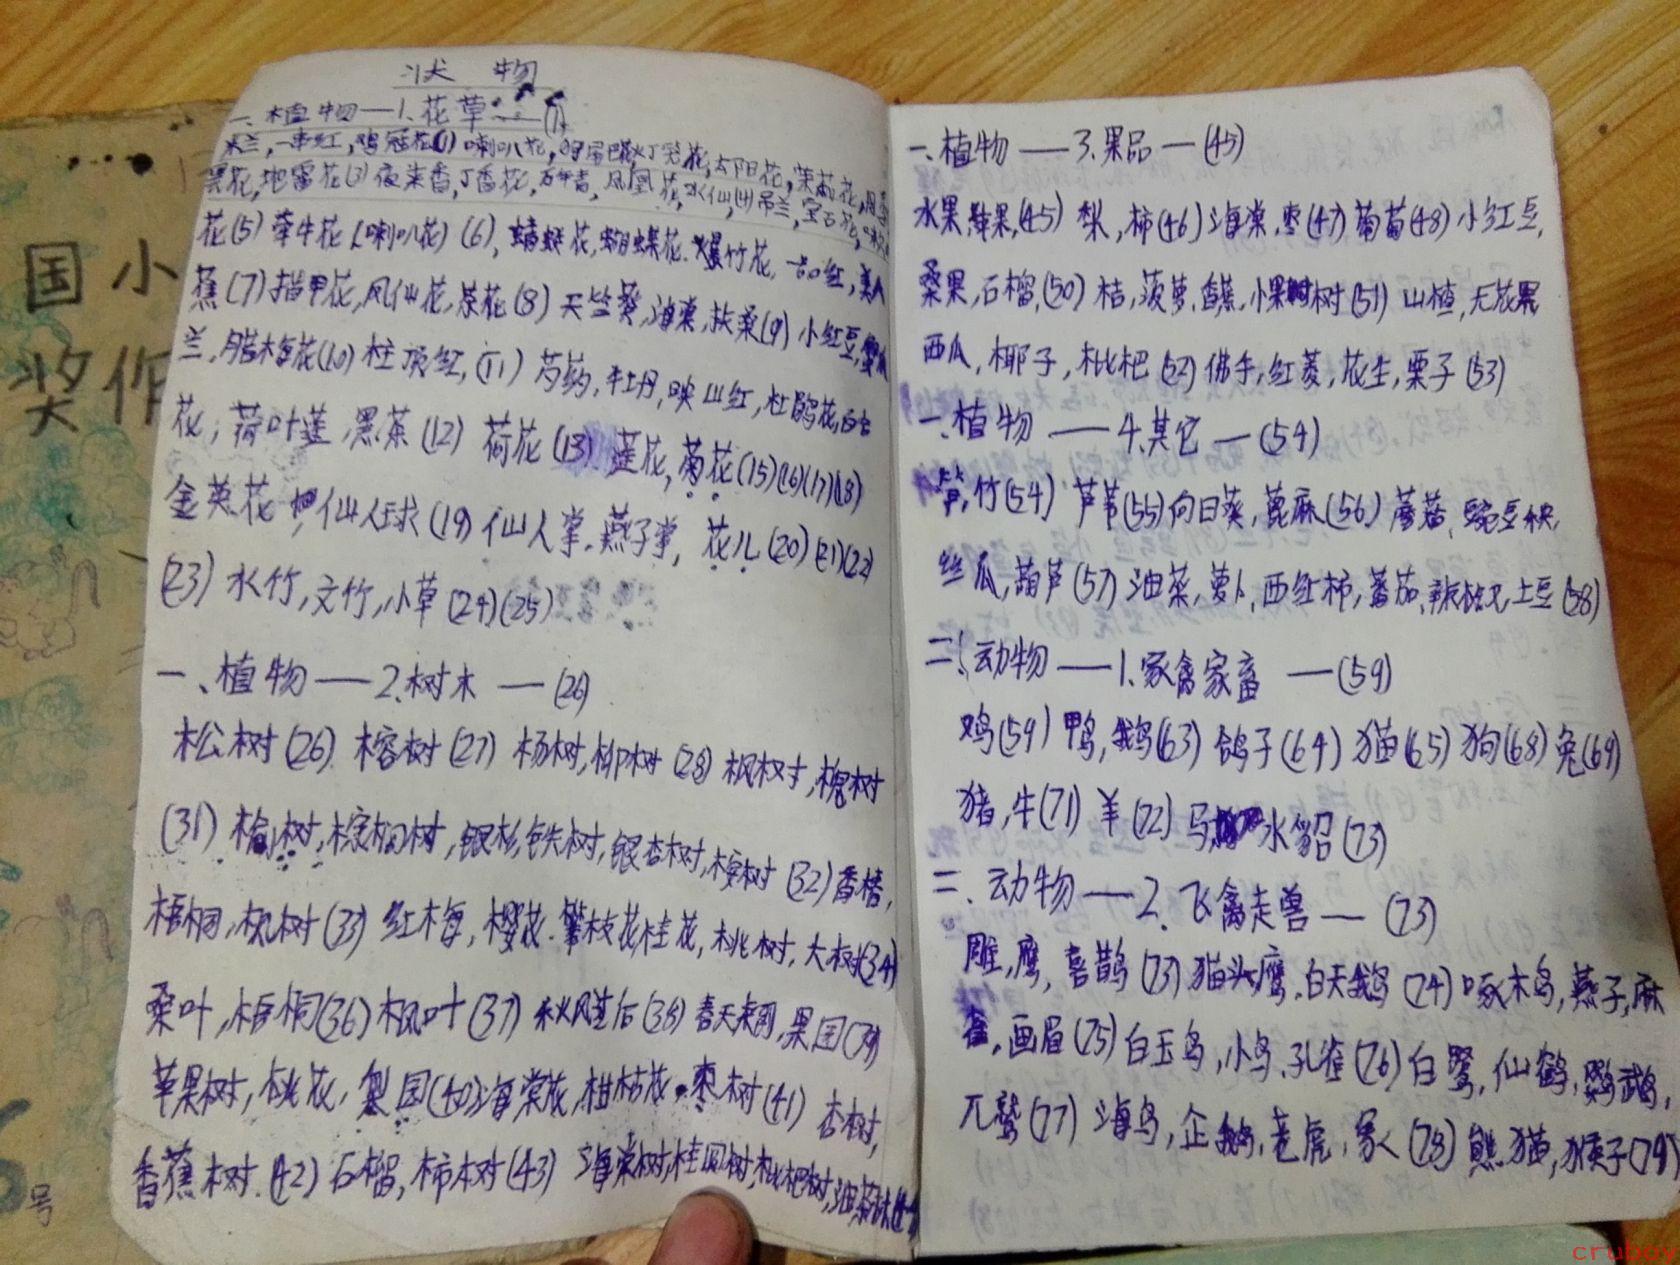 国 小
奖 作
号
状 物
一、植物——1.花草——(1)
米兰,一串红,鸡冠花(1)喇叭花,太阳花,茉莉花,
昙花,地雷花(3)夜来香,丁香花,万年青,凤凰花,水仙(4)吊兰,宝石花,
花(5)牵牛花(喇叭花)(6),蜻蜓花,蝴蝶花.爆竹花,一品红,美人
蕉(7)指甲花,凤仙花,茶花(8)天竺葵,海棠,扶桑(9)小红豆,
兰,腊梅花(10)柱顶红,(11)芍药,牡丹,映山红,杜鹃花,百合
花,荷叶莲,黑茶(12)荷花(13)莲花,菊花(15)(16)(17)(18)
金英花 仙人球(19)仙人掌.燕子掌,花儿(20)(21)(22)
(23)水竹,文竹,小草(24)(25)
一、植物——2.树木——(26)
松树(26)榕树(27)杨树,柳树(28)枫树,槐树
(31)榆树,棕榈树,银杉,铁树,银杏树,桉树(32)香樟,
梧桐,枫树(33)红梅,樱花.攀枝花,桂花,桃树,大树(34)
桑叶,梧桐(36)枫叶(37)秋风过后(38)春天来前,果园(39)
苹果树,桃花,梨园(40)海棠花,柑桔花.枣树(41)杏树,
香蕉树.(42)石榴,柿树(43)海棠树,桂圆树,枇杷树,油茶林(44)
一、植物——3.果品—(45)
水果,苹果,(45)梨,柿(46)海棠,枣(47)葡萄(48)小红豆,
桑果,石榴,(50)桔,菠萝,香蕉,小果树(51)山楂,无花果
西瓜,椰子,枇杷(52)佛手,红菱,花生,栗子(53)
一、植物——4.其它—(54)
笋,竹(54)芦苇(55)向日葵,蓖麻(56)蘑菇,豌豆秧,
丝瓜,葫芦(57)油菜,萝卜,西红柿,蕃茄,辣椒,土豆(58)
二、动物——1.家禽家畜——(59)
鸡(59)鸭,鹅(63)鸽子(64)猫(65)狗(68)兔(69)
猪,牛(71)羊(72)马 水貂(73)
二、动物——2.飞禽走兽—(73)
雕,鹰,喜鹊(73)猫头鹰,白天鹅(74)啄木鸟,燕子,麻
雀,画眉(75)白玉鸟,小鸟,孔雀(76)白鹭,仙鹤,鹦鹉,
兀鹫(77)海鸟,企鹅,老虎,象(78)熊猫,猴子(79)
crubov